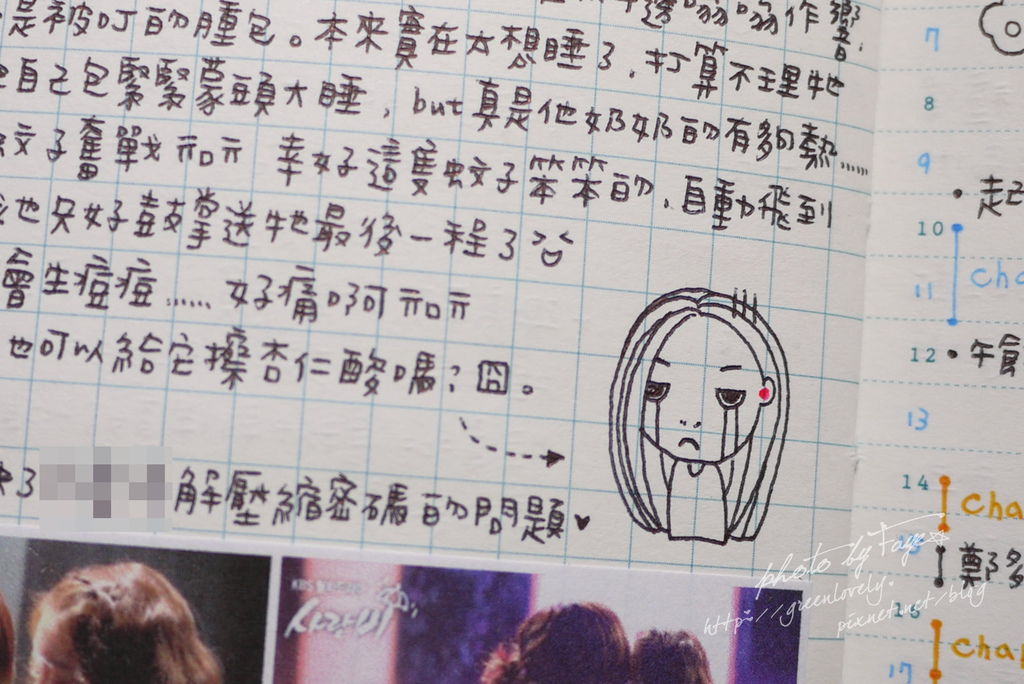 是被叮的腫包。本來實在太想睡了，打算不理牠
自己包緊緊蒙頭大睡，but真是他奶奶的有夠熱……
蚊子奮戰 ㄇㄇ 幸好這隻蚊子笨笨的，自動飛到
也只好鼓掌送牠最後一程了
會生痘痘…… 好痛啊 ㄇㄇ
也可以給它擦杏仁酸嗎？囧。
解壓縮密碼的問題♥
7
8
9
10
11
12 • 午餐
13
14
16
17
KBS
사랑비
photo by Faye☆
http://greenlovely.
pixnet.net/blog